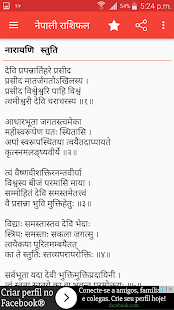 5:24 p.m.
नेपाली राशिफल
नारायणि स्तुति
देवि प्रपन्नार्तिहरे प्रसीद
प्रसीद मातर्जगतोऽखिलस्य ।
प्रसीद विश्वेश्वरि पाहि विश्वं
त्वमीश्वरी देवि चराचरस्य ॥१॥
आधारभूता जगतस्त्वमेका
महीस्वरूपेण यतः स्थितासि ।
अपां स्वरूपस्थितया त्वयैतदाप्यायते
कृत्स्नमलङ्घ्यवीर्ये ॥२॥
त्वं वैष्णवीशक्तिरनन्तवीर्या
विश्वस्य बीजं परमासि माया ।
सम्मोहितं देवि समस्तमेतत्त्वं
वै प्रसन्ना भुवि मुक्तिहेतुः ॥३॥
विद्याः समस्तास्तव देवि भेदाः
स्त्रियः समस्ताः सकला जगत्सु ।
त्वयैकया पूरितमम्बयैतत्
का ते स्तुतिः स्तव्यपरापरोक्तिः ॥४॥
सर्वभूता यदा देवी भुक्तिमुक्तिप्रदायिनी ।
Crear perfil no
Facebook®
Mantente-se a amigos, família
e colegas. Crie seu perfil hoje!
facebook.com